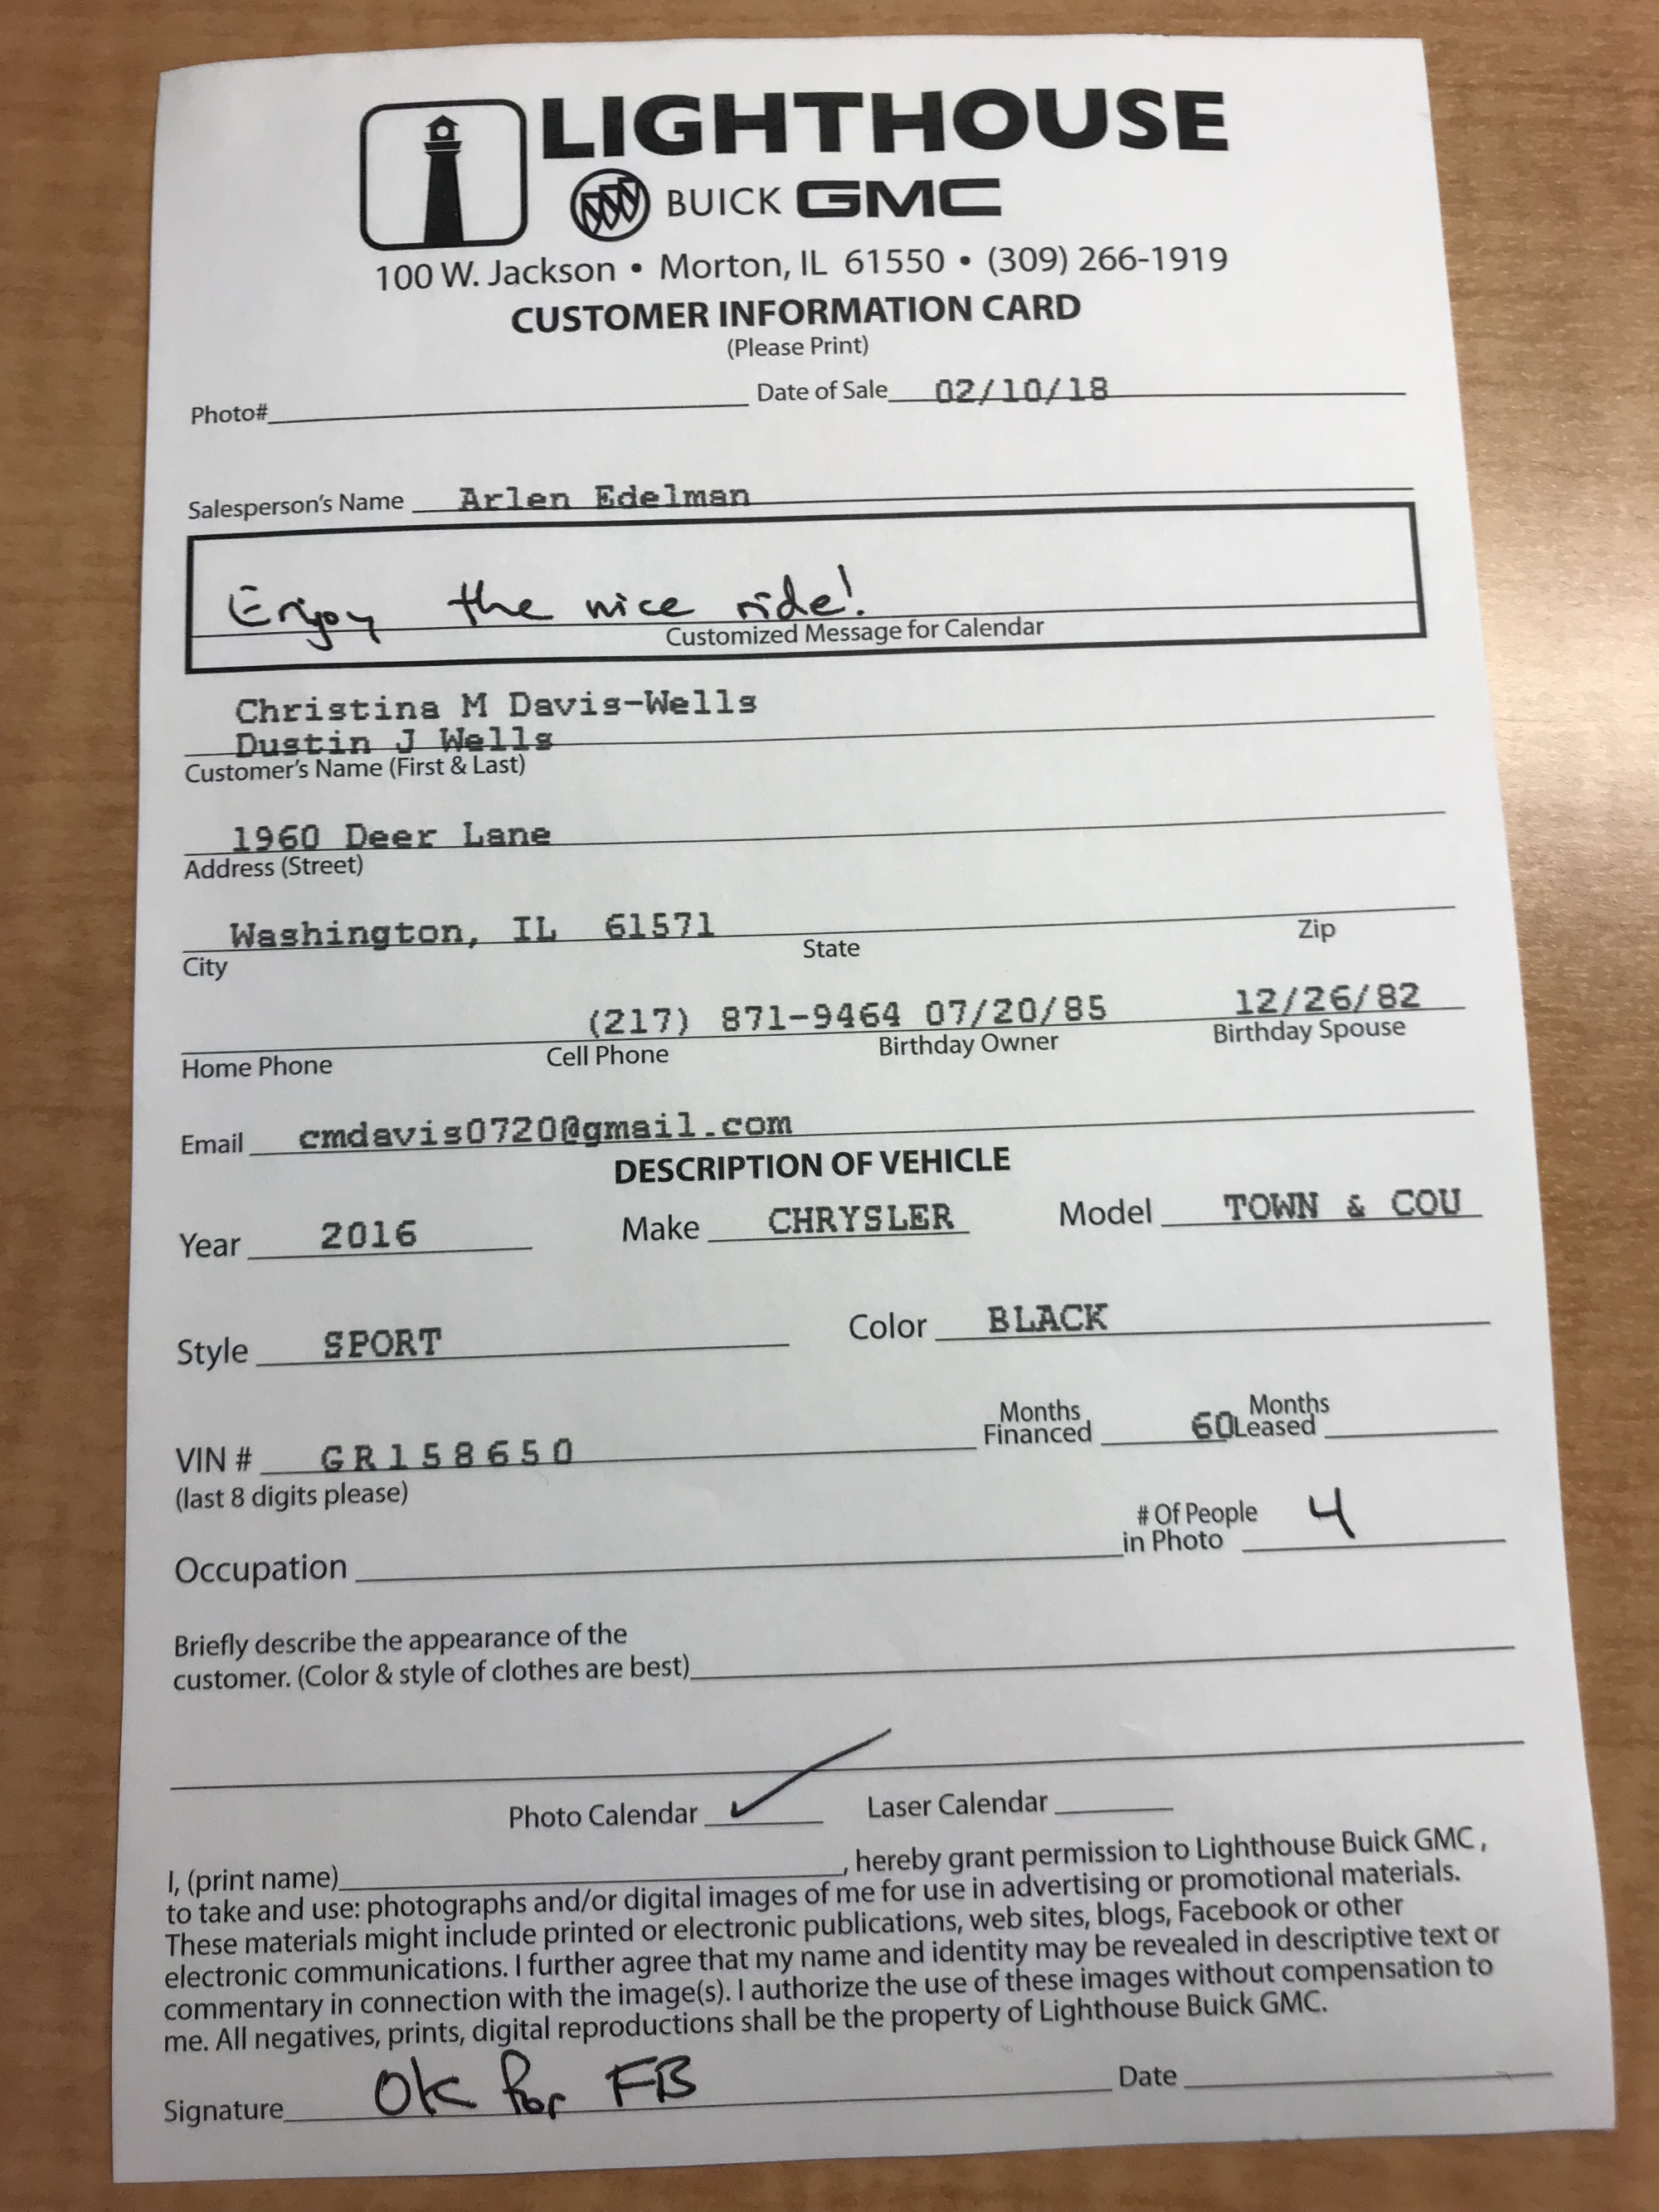 LIGHTHOUSE
BUICK GMC
100 W. Jackson • Morton, IL 61550 • (309) 266-1919
CUSTOMER INFORMATION CARD
(Please Print)
Photo# Date of Sale 02/10/18
Salesperson's Name Arlen Edelman
Enjoy the nice ride!
Customized Message for Calendar
Christina M Davis-Wells
Dustin J Wells
Customer's Name (First & Last)
1960 Deer Lane
Address (Street)
Washington, IL 61571
City State Zip
(217) 871-9464 07/20/85 12/26/82
Home Phone Cell Phone Birthday Owner Birthday Spouse
Email cmdavis0720@gmail.com
DESCRIPTION OF VEHICLE
Year 2016 Make CHRYSLER Model TOWN & COU
Style SPORT Color BLACK
VIN # GR158650 Months Financed 60 Months Leased
(last 8 digits please)
Occupation # Of People in Photo 4
Briefly describe the appearance of the
customer. (Color & style of clothes are best)
Photo Calendar ✓ Laser Calendar
I, (print name) , hereby grant permission to Lighthouse Buick GMC ,
to take and use: photographs and/or digital images of me for use in advertising or promotional materials.
These materials might include printed or electronic publications, web sites, blogs, Facebook or other
electronic communications. I further agree that my name and identity may be revealed in descriptive text or
commentary in connection with the image(s). I authorize the use of these images without compensation to
me. All negatives, prints, digital reproductions shall be the property of Lighthouse Buick GMC.
Signature OK for FB Date